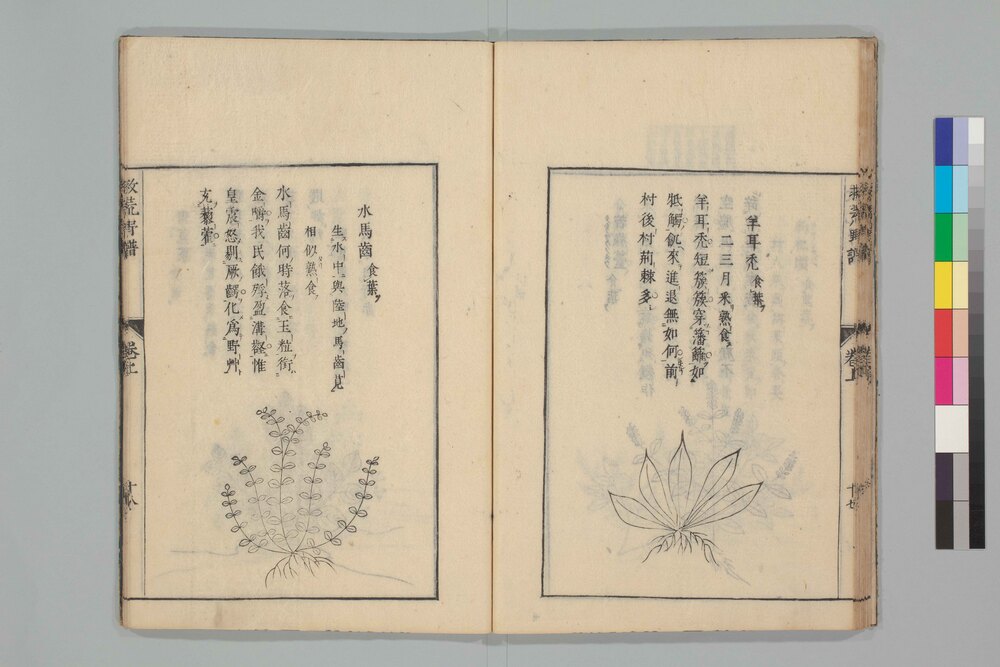 救荒野譜
卷上
十七
羊耳禿 食葉
二三月采熟食
羊耳禿短簇簇穿藩籬如
牴觸飢來進退無如何前
村後村荊棘多
水馬齒 食葉
生水中與陸地馬齒莧
相似熟食
水馬齒何時落食玉粒銜
金嚼我民餓殍盈溝壑惟
皇震怒剔厥齶化為野艸
充藜藿
救荒野譜
卷上
十八